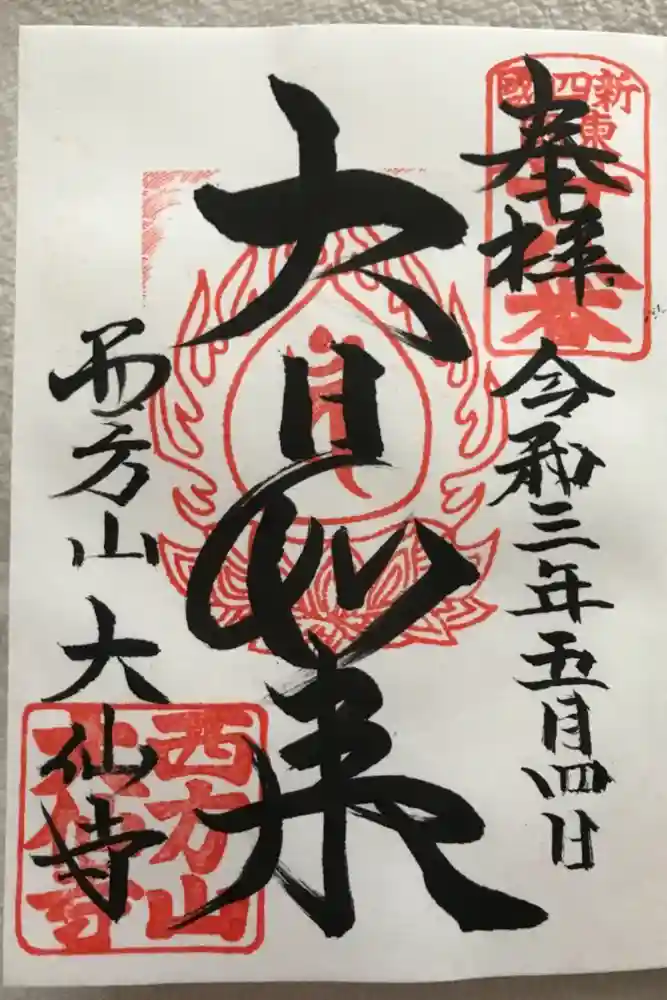 新四國
東
番
奉拝
令和三年五月四日
大日如来
西方山 大仙寺
西方山
大仙寺